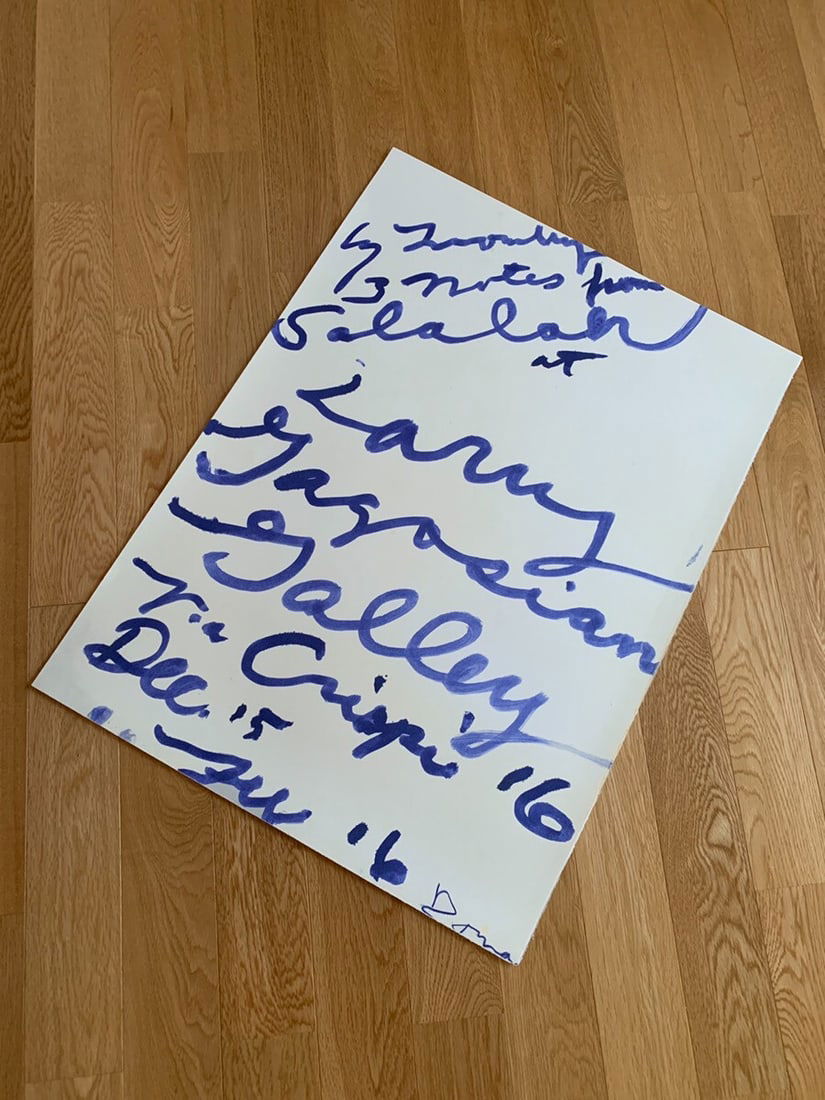 Cy Twombly
3 Notes from
Salalah
at
Larry
Gagosian
Galley
Via Crispi '16
Dec. '15
'16
Roma